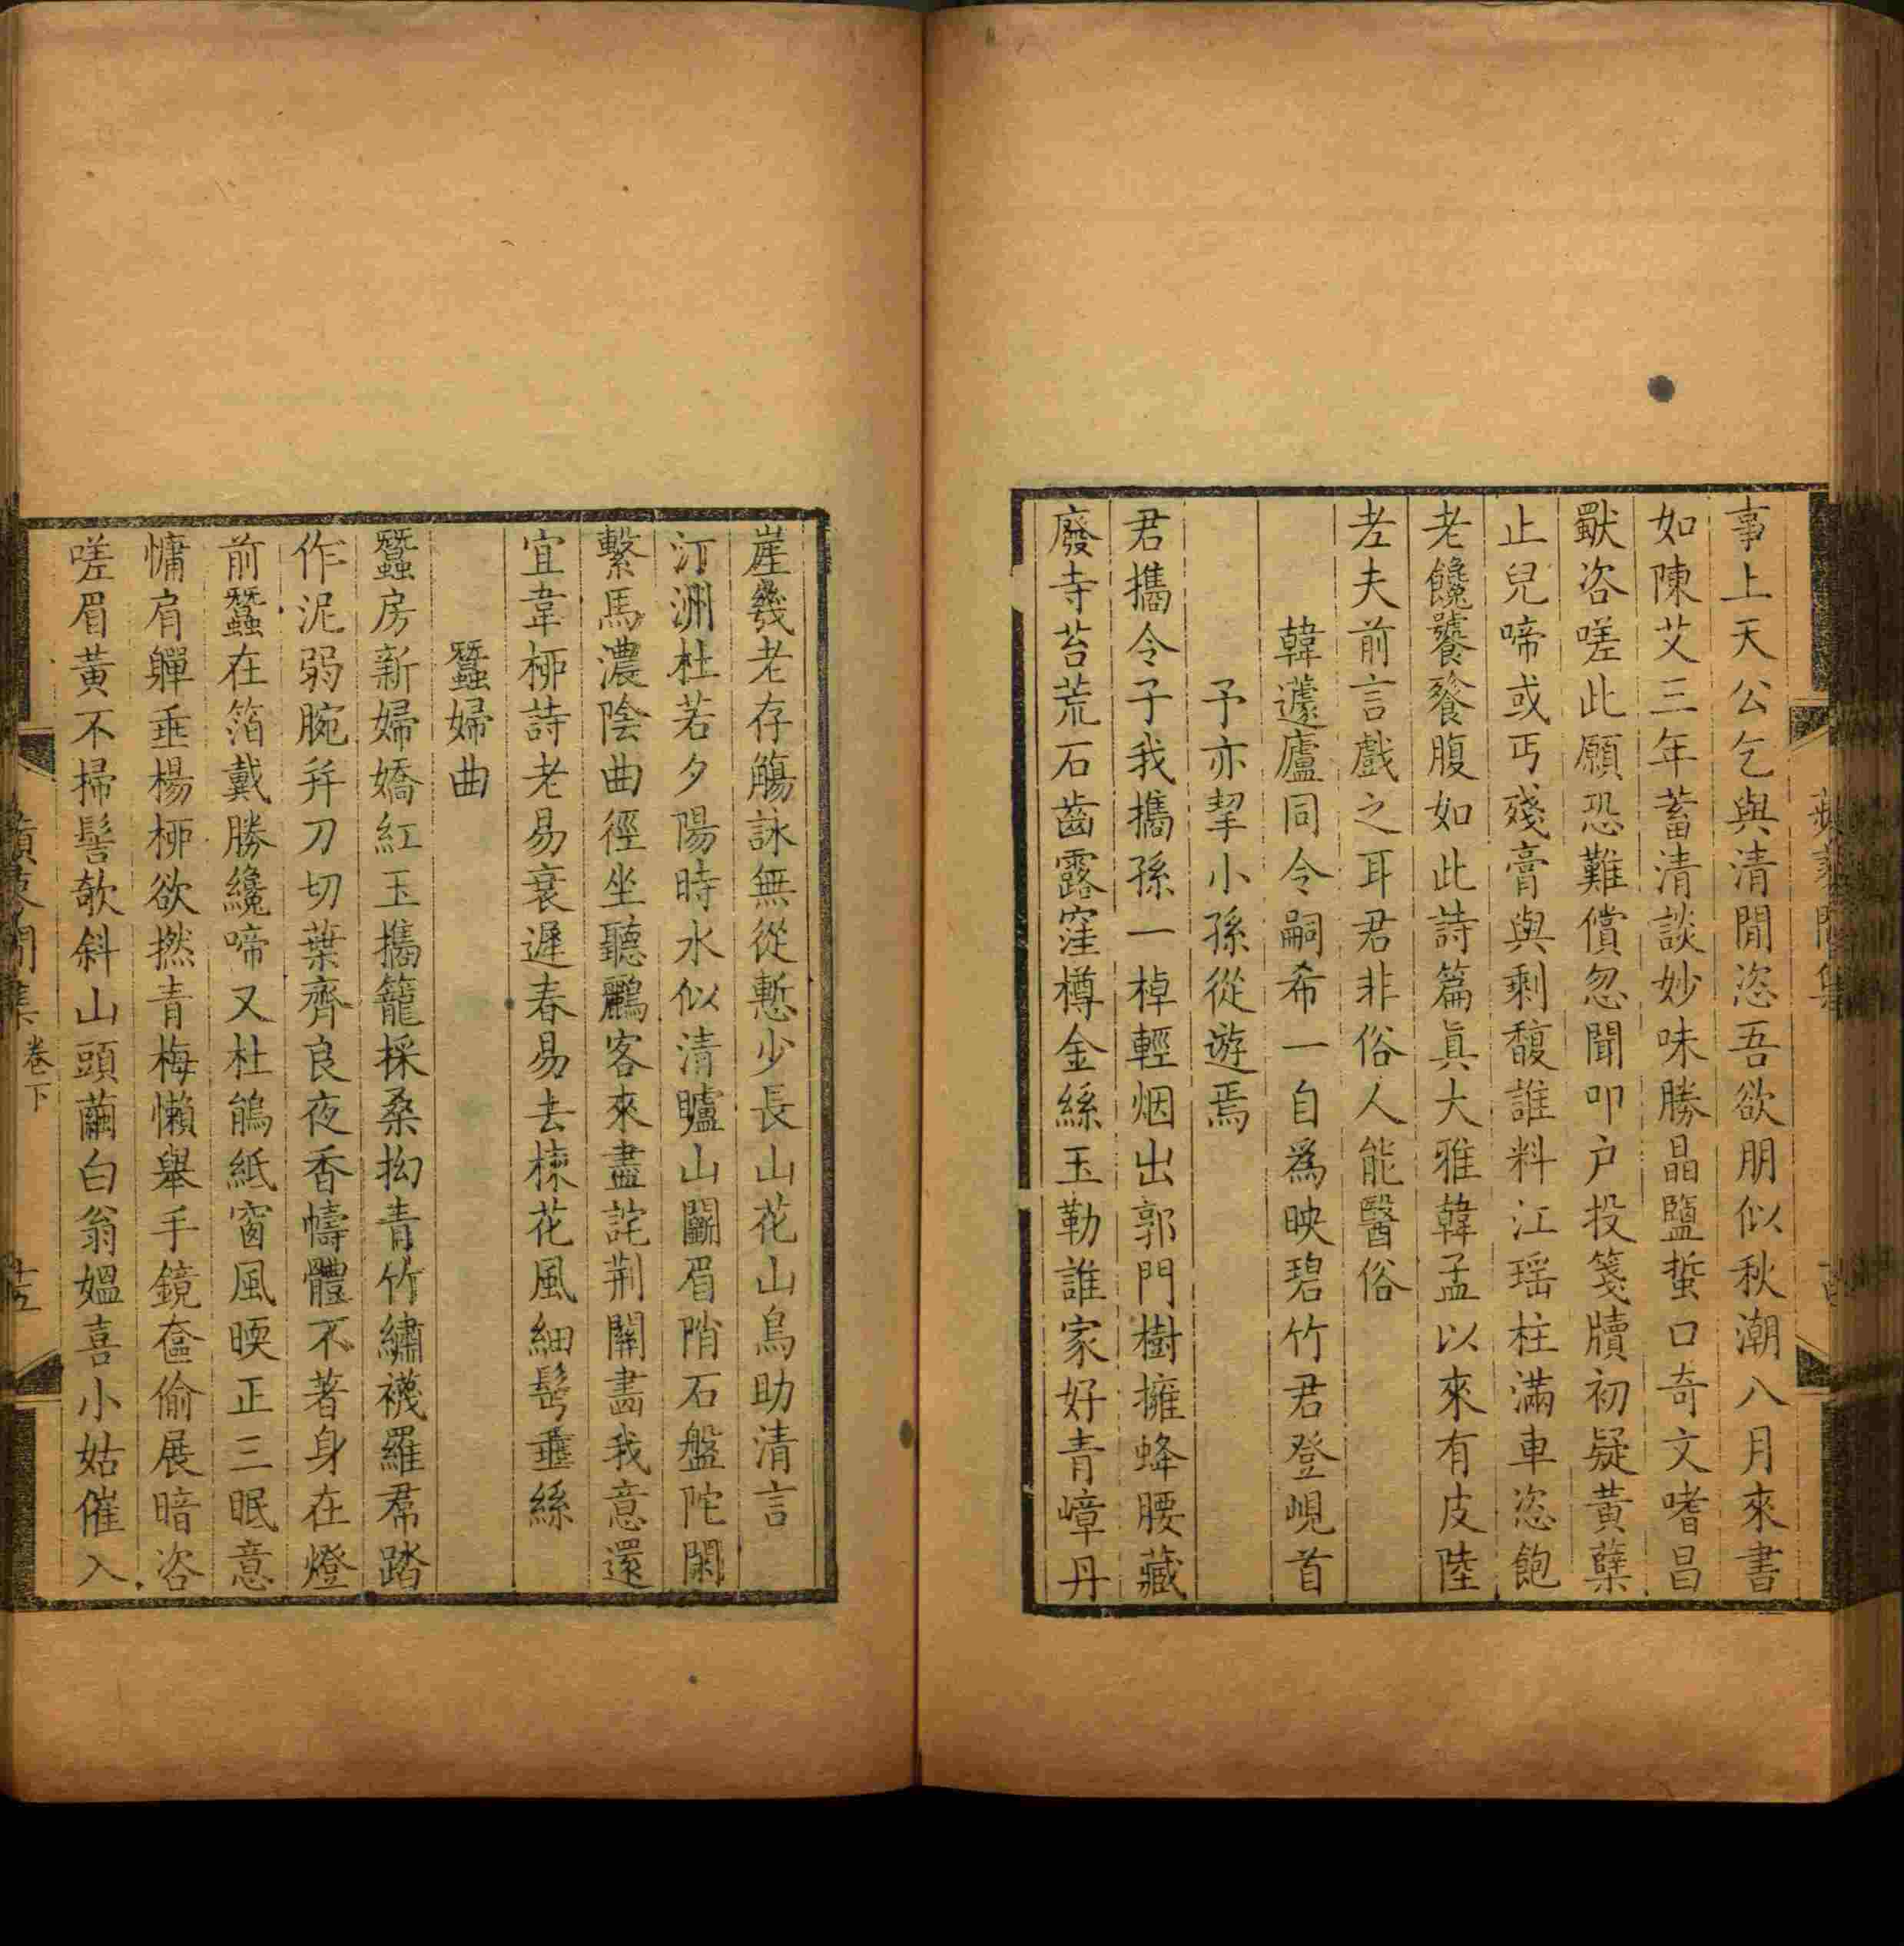 事上天公乞與清閒恣吾欲朋似秋潮八月來書
如陳艾三年蓄清談妙味勝晶鹽蜇口奇文嗜昌
歜咨嗟此願恐難償忽聞叩户投箋牘初疑黃蘖
止兒啼或丐殘膏與剩馥誰料江瑶柱滿車恣飽
老饞饕餮腹如此詩篇眞大雅韓孟以來有皮陸
老夫前言戲之耳君非俗人能醫俗
韓蘧廬同令嗣希一自爲映碧竹君登峴首
予亦挈小孫從遊焉
君攜令子我攜孫一棹輕烟出郭門樹擁蜂腰藏
廢寺苔荒石齒露窪樽金絲玉勒誰家好青嶂丹
崖幾老存觴詠無從慙少長山花山鳥助清言
汀洲杜若夕陽時水似清矑山鬭眉階石盤陀閑
繫馬濃陰曲徑坐聽鸝客來盡詫荆關畵我意還
宜韋桺詩老易衰遲春易去楝花風細髩垂絲
蠶婦曲
蠶房新婦嬌紅玉攜籠採桑拗青竹繡襪羅帬踏
作泥弱腕并刀切葉齊良夜香幬體不著身在燈
前蠶在箔戴勝纔啼又杜鵑紙窗風暝正三眠意
慵肩嚲垂楊桺欲撚青梅懶舉手鏡奩偷展暗咨
嗟眉黃不掃髻欹斜山頭繭白翁媼喜小姑催入
卷下